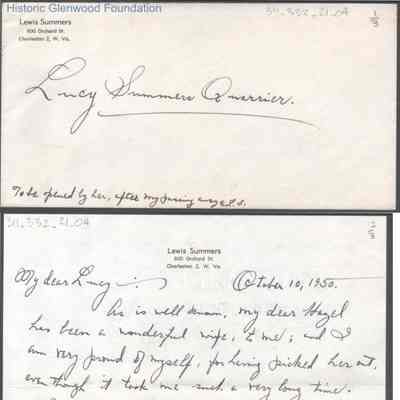 Historic Glenwood Foundation
Lewis Summers
800 Orchard St.
Charleston 2, W. Va.
1/3
Lucy Summers Quarrier.
To be opened by her, after my passing away L.S.
Lewis Summers
800 Orchard St.
Charleston 2, W. Va.
My dear Lucy:
October 10, 1950.
As is well known, my dear Hazel
has been a wonderful wife, to me; and I
am very proud of myself, for having picked her out,
even though it took me such a very long time.